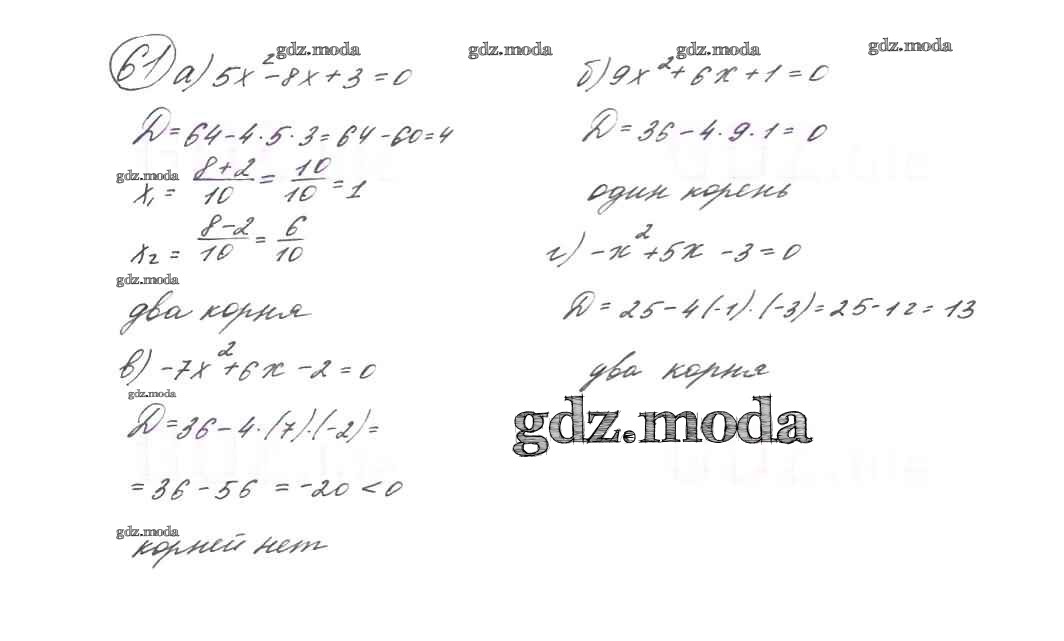 gdz.moda gdz.moda gdz.moda gdz.moda
61 а) 5x² - 8x + 3 = 0
D = 64 - 4 · 5 · 3 = 64 - 60 = 4
gdz.moda
x₁ = (8+2)/10 = 10/10 = 1
x₂ = (8-2)/10 = 6/10
gdz.moda
два корня
в) -7x² + 6x - 2 = 0
gdz.moda
D = 36 - 4 · (7) · (-2) =
= 36 - 56 = -20 < 0
gdz.moda
корней нет
б) 9x² + 6x + 1 = 0
D = 36 - 4 · 9 · 1 = 0
один корень
г) -x² + 5x - 3 = 0
D = 25 - 4(-1) · (-3) = 25 - 12 = 13
два корня
gdz.moda